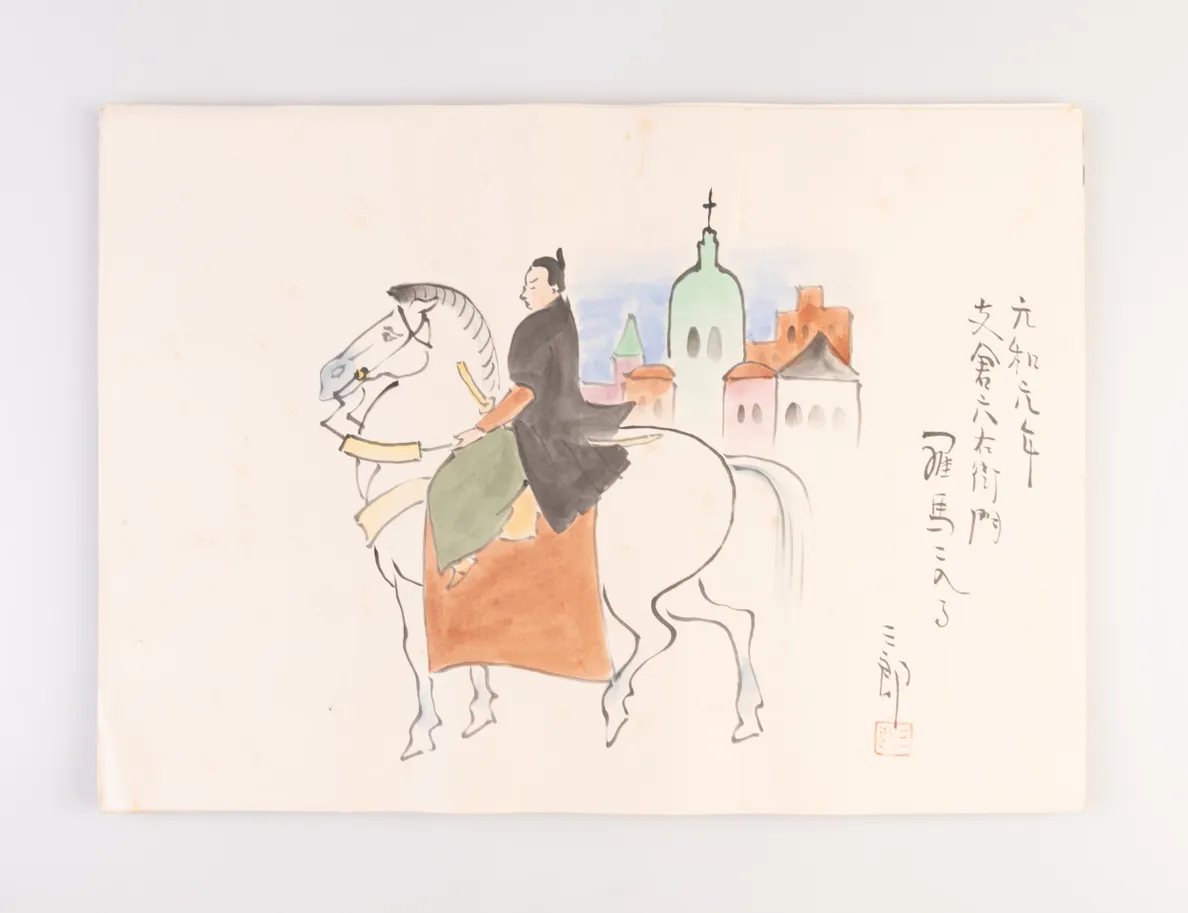 元和元年
支倉六右衛門
羅馬ニ入る
三郎